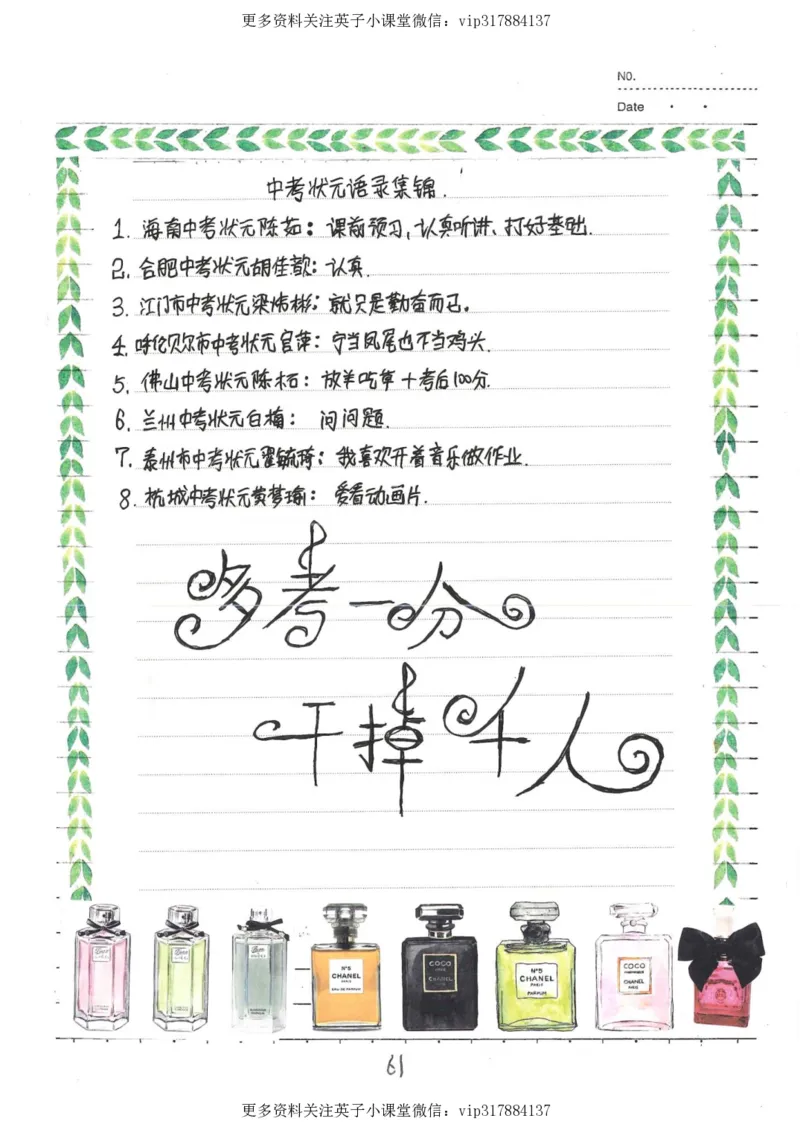 更多资料关注英子小课堂微信：vip317884137
NO.
Date
中考状元语录集锦.
1. 海南中考状元陈茹：课前预习,认真听讲、打好基础.
2. 合肥中考状元胡佳歆：认真.
3. 江门市中考状元梁炜彬：就只是勤奋而已。
4. 呼伦贝尔市中考状元官萍：宁当凤尾也不当鸡头.
5. 佛山中考状元陈柘：放羊吃草+考后100分.
6. 兰州中考状元白梅： 问问题.
7. 泰州市中考状元翟毓琦：我喜欢开着音乐做作业.
8. 杭城中考状元黄梦瑜： 爱看动画片.
多考一分
干掉千人
N°5
CHANEL
PARIS
EAU DE PARFUM
COCO
CHANEL
N°5
CHANEL
PARIS
PARFUM
COCO
CHANEL
PARIS
61
更多资料关注英子小课堂微信：vip317884137